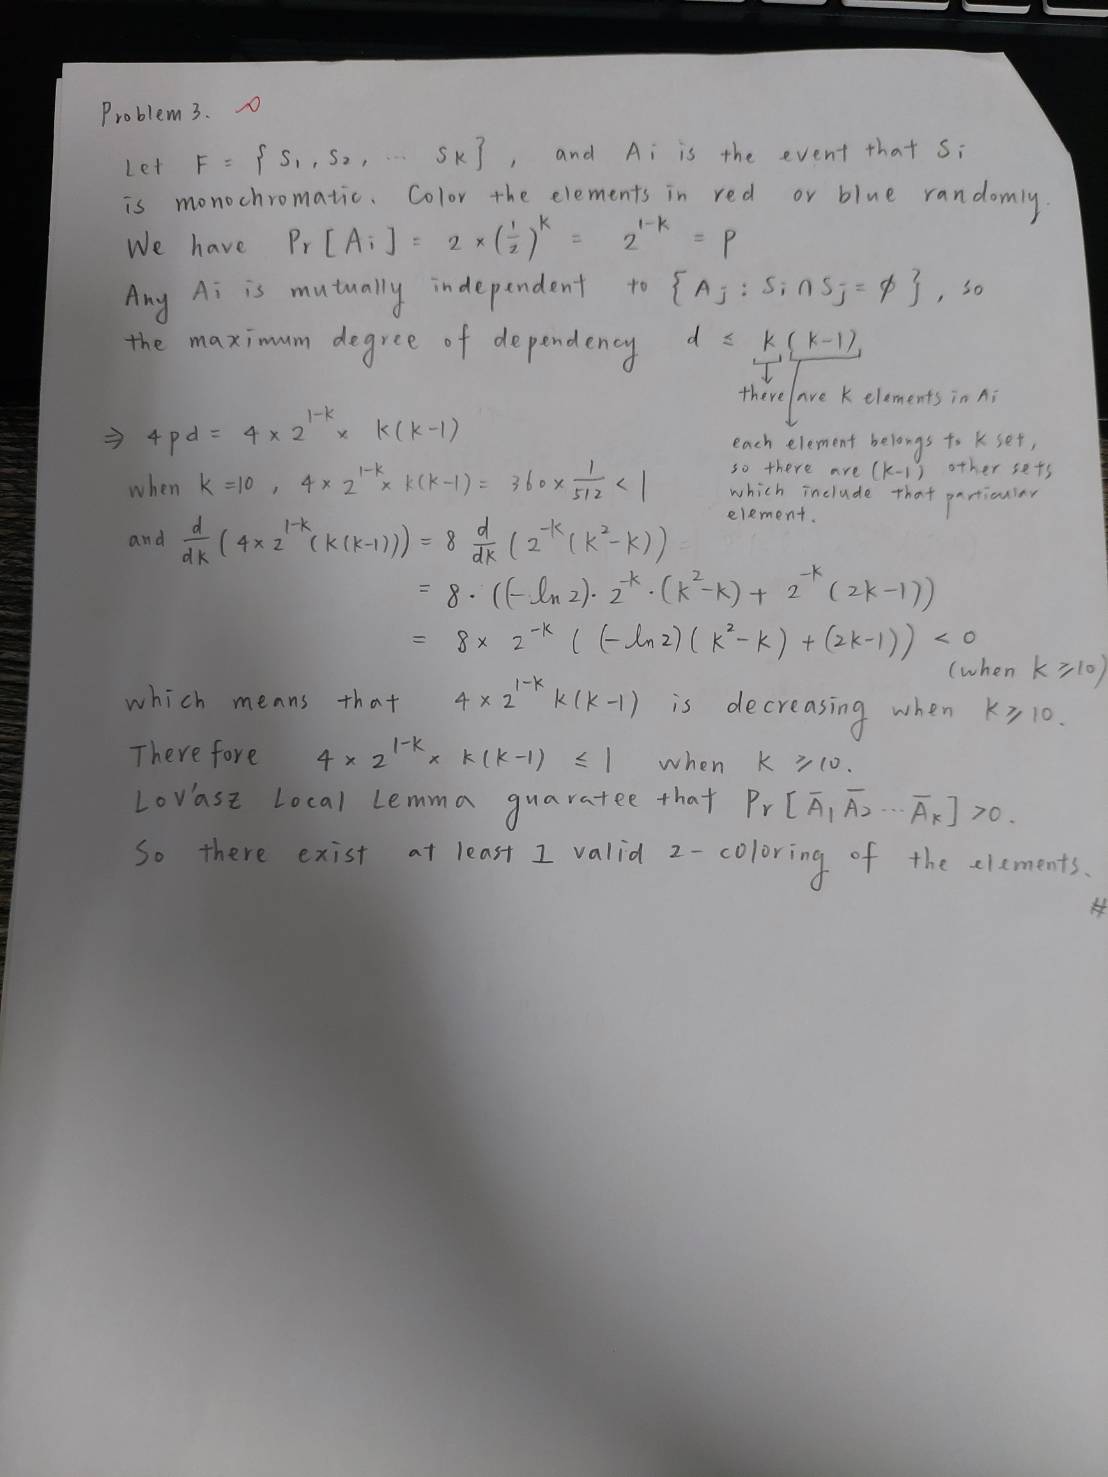 Problem 3.
Let F = { S₁, S₂, ... Sₖ }, and Aᵢ is the event that Sᵢ
is monochromatic. Color the elements in red or blue randomly.
We have Pr[Aᵢ] = 2 × (1/2)^k = 2^(1-k) = p
Any Aᵢ is mutually independent to { Aⱼ : Sᵢ ∩ Sⱼ = ∅ }, so
the maximum degree of dependency d ≤ k(k-1)
there are k elements in Ai
each element belongs to k set,
so there are (k-1) other sets
which include that particular
element.
⇒ 4pd = 4 × 2^(1-k) × k(k-1)
when k = 10, 4 × 2^(1-k) × k(k-1) = 360 × 1/512 < 1
and d/dk (4 × 2^(1-k) (k(k-1))) = 8 d/dk (2^(-k) (k²-k))
= 8 · ((-ln 2) · 2^(-k) · (k²-k) + 2^(-k) (2k-1))
= 8 × 2^(-k) ((-ln 2)(k²-k) + (2k-1)) < 0
(when k ≥ 10)
which means that 4 × 2^(1-k) k(k-1) is decreasing when k ≥ 10.
Therefore 4 × 2^(1-k) × k(k-1) ≤ 1 when k ≥ 10.
Lov'asz Local Lemma guaratee that Pr[Ā₁ Ā₂ ... Āₖ] > 0.
So there exist at least 1 valid 2-coloring of the elements.
#